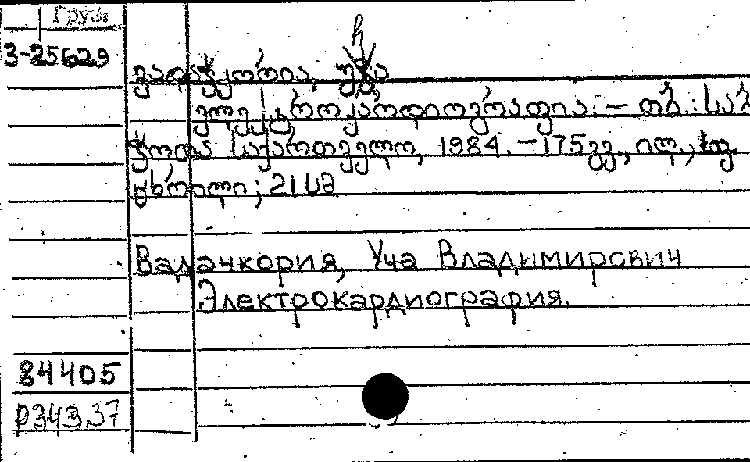 Груз.
3-25629
ვადაჭკორია, უჩა
ელექტროკარდიოგრაფია. – თბ.: საბ
ჭოთა საქართველო, 1984. – 175 გვ., ილ.,
ცხრილი; 21 სმ
Вадачкория, Уча Владимирович
Электрокардиография.
84405
Р343.37